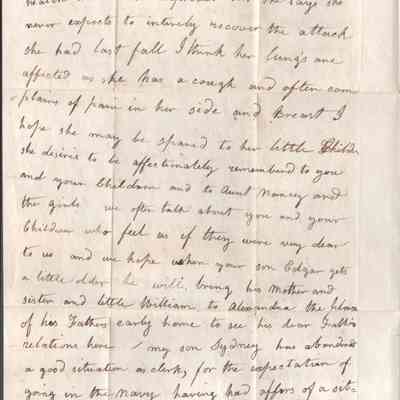 she says she
never expects to intirely recover the attack
she had last fall I think her lungs are
affected as she has a cough and often com
plains of pain in her side and Breast I
hope she may be spared to her little Childr
she desires to be affectionately rememberd to you
and your Children and to Aunt Nancy and
the girls we often talk about you and your
Children who feel as if they were very dear
to us and we hope when your son Edgar gets
a little older he will bring his Mother and
sister and little William to Alexandria the
of his Fathers early home to see his dear Fathers
relations here my son Sydney has
a good situation as clerk, for the expectation of
going in the navy having had offers of a sit=